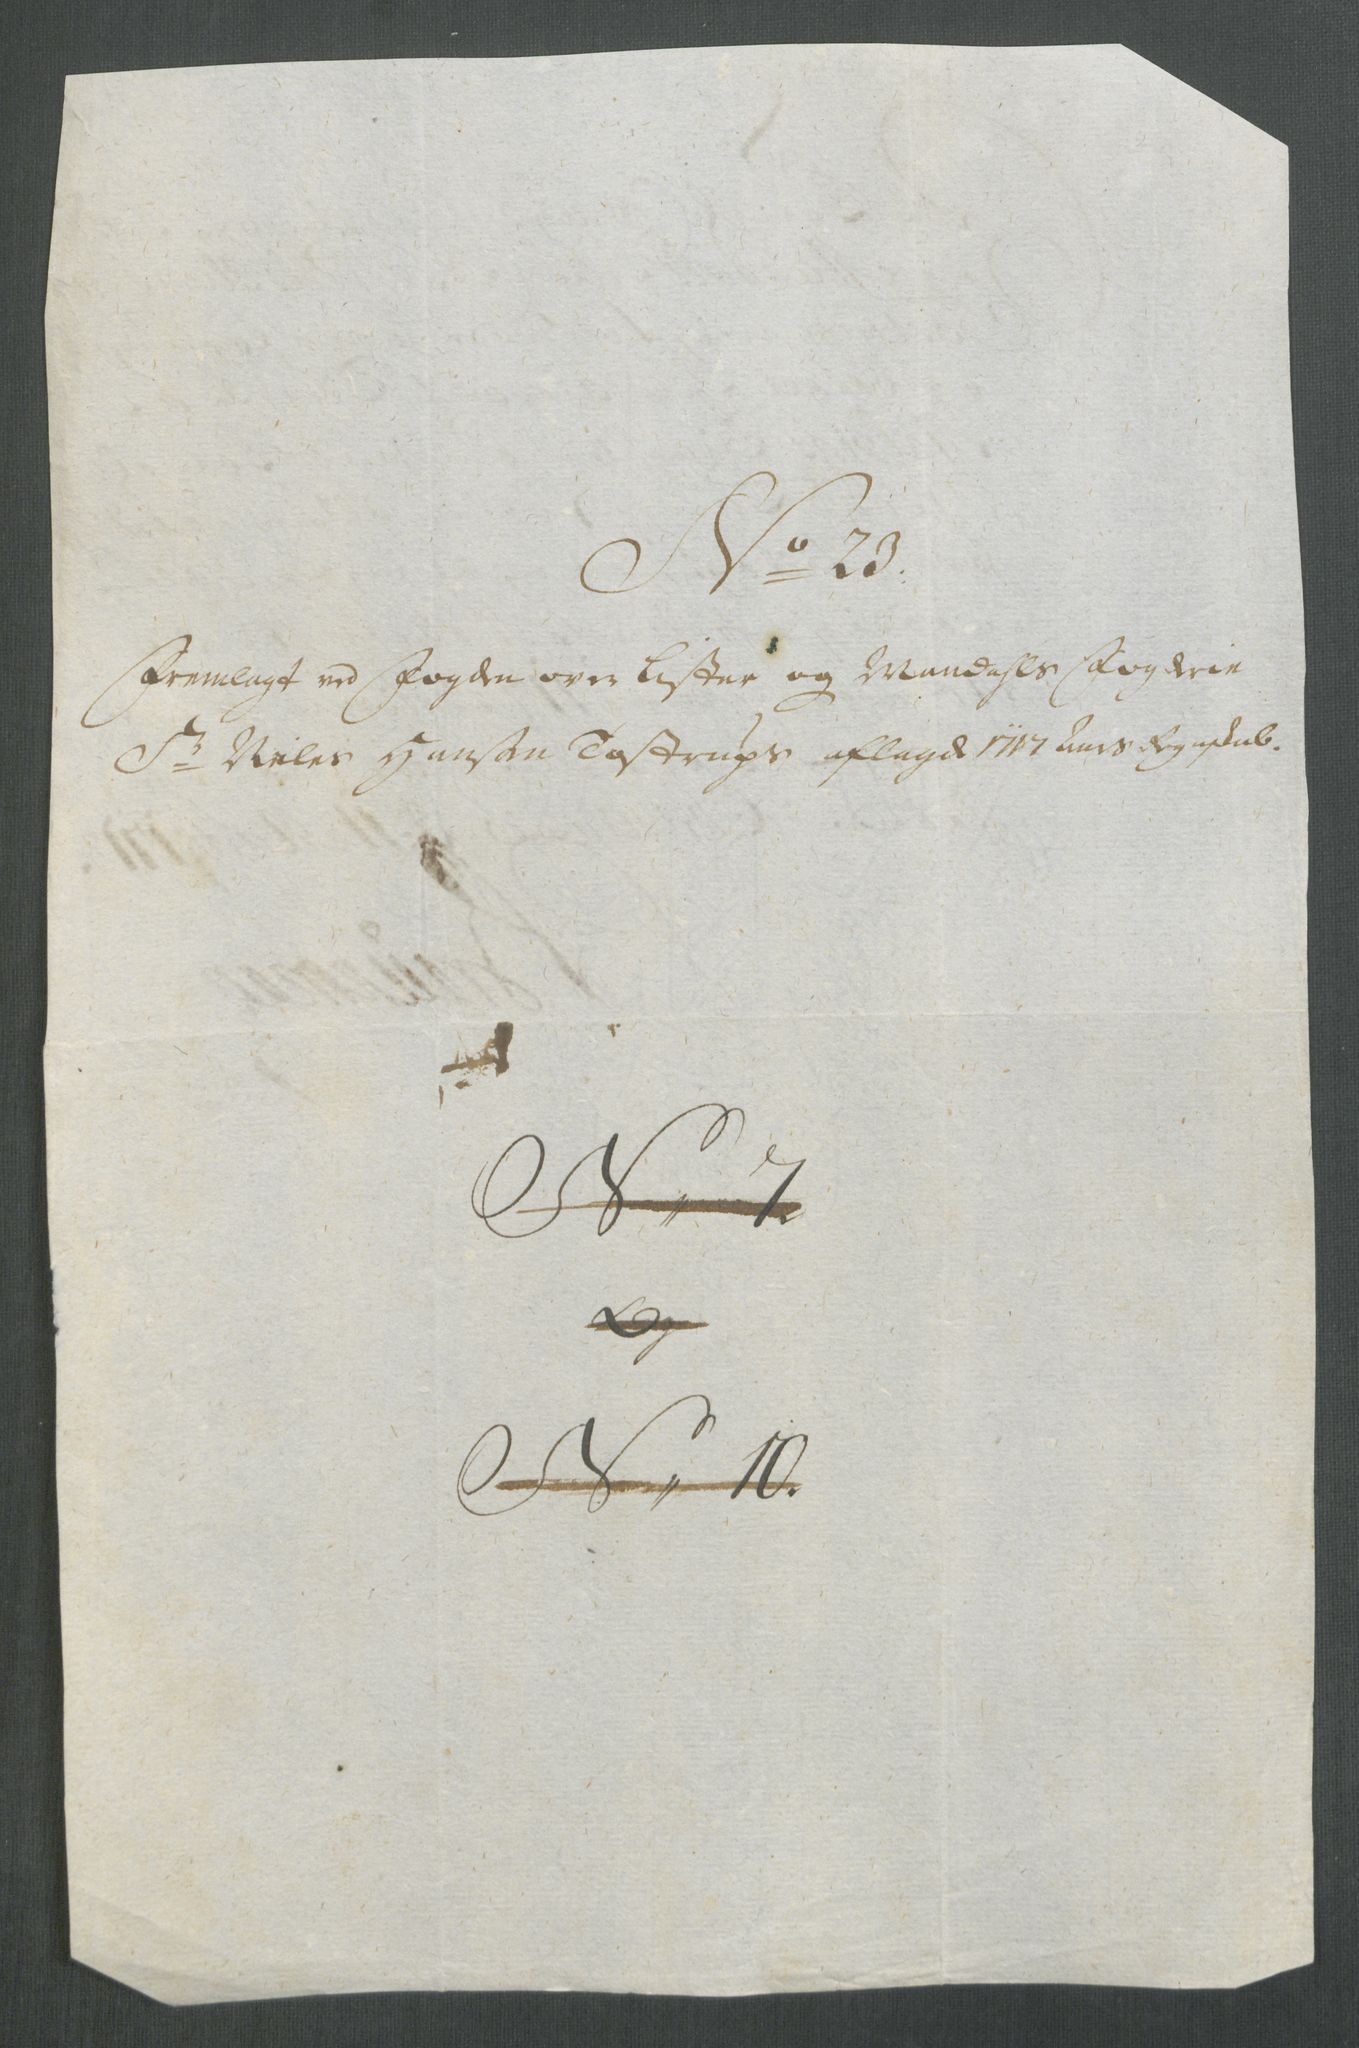 No 23.
Fremlagt ved Fogden over Lister og Mandahls Fogderie
Sr Niels Hansen Tostrups aflagde 1717 Aars Regnskab.
N. 7.
Og
N. 10.